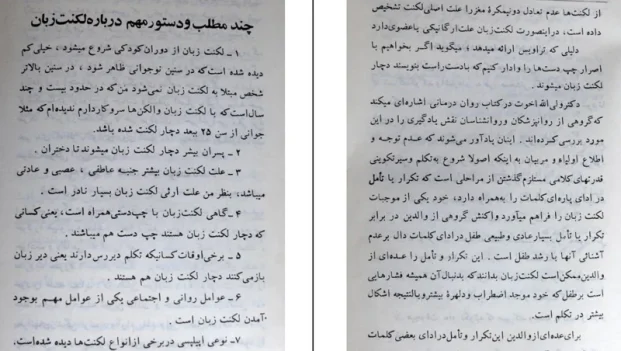 چند مطلب و دستور مهم درباره لکنت‌زبان
۱ - لکنت زبان از دوران‌کودکی شروع میشود ، خیلی‌کم
دیده شده است‌که در سنین نوجوانی ظاهر شود ، در سنین بالاتر
شخص مبتلا به لکنت زبان نمی‌شود من‌که در حدود بیست و چند
سال‌است‌که با لکنت زبان والکن‌ها سروکاردارم ندیده‌ام‌که مثلا
جوانی از سن ۲۵ ببعد دچار لکنت شده باشد.
۲ - پسران بیشتر دچار لکنت زبان میشوند تا دختران .
۳ - علت لکنت زبان بیشتر جنبه عاطفی ، عصبی و عادتی
میباشد، بنظر من علت ارثی لکنت زبان بسیار نادر است .
۴- گاهی لکنت‌زبان با چپ‌دستی‌همراه است، یعنی‌کسانی
که دچار لکنت زبان هستند چپ دست هم میباشند .
۵ - برخی‌اوقات‌کسانیکه تکلم دیررس‌دارند یعنی دیر زبان
بازمی‌کنند دچار لکنت زبان هم هستند .
۶ - عوامل روانی و اجتماعی یکی از عوامل مهم بوجود
آمدن لکنت زبان است .
۷- نوعی اپیلسی دربرخی ازانواع لکنت‌ها دیده شده‌است،
از لکنت‌ها عدم تعادل دونیمکرۀ مغزرا علت اصلی‌لکنت تشخیص
داده است، دراینصورت لکنت‌زبان علت‌ارگانیکی یاعضوی‌دارد
دلیلی که تراویس ارائه میدهد ، میگوید اگر بخواهیم با
اصرار چپ دست‌ها را وادار کنیم‌که بادست‌راست بنویسند دچار
لکنت زبان میشوند .
دکترولی‌الله اخوت درکتاب روان درمانی اشاره‌ای میکند
که‌گروهی از روانپزشکان وروانشناسان نقش یادگیری را در این
مورد بررسی‌کرده‌اند . اینان یادآور می‌شوند که عدم توجه و
اطلاع اولیاء و مربیان به اینکه اصولا شروع به‌تکلم وسیرتکوینی
قدرتهای کلامی مستلزم‌گذشتن از مراحلی است که تکرار یا تأمل
در ادای پاره‌ای‌کلمات را به‌همراه دارد، خود یکی از موجبات
لکنت زبان را فراهم میآورد واکنش گروهی از والدین در برابر
تکرار یا تأمل بسیارعادی وطبیعی طفل‌درادای‌کلمات دال برعدم
آشنائی آنها با رشد طفل است . این تکرار و تأمل را عده‌ای از
والدین‌ممکن‌است لکنت‌زبان بدانندکه بدنبال‌آن همیشه فشارهایی
است برطفل‌که خود موجد اضطراب ودلهرۀ بیشتروبالنتیجه اشکال
بیشتر در تکلم است.
برای‌عده‌ای‌ازوالدین این‌تکرار وتأمل‌درادای بعضی‌کلمات